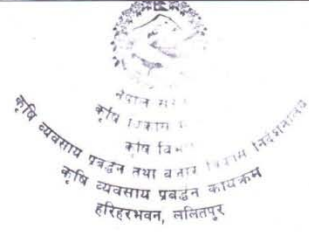 नेपाल
कृषि विकास
कृषि
कृषि व्यवसाय प्रबर्द्धन तथा बजार विकास निर्देशनालय
कृषि व्यवसाय प्रबर्द्धन कार्यक्रम
हरिहरभवन, ललितपुर